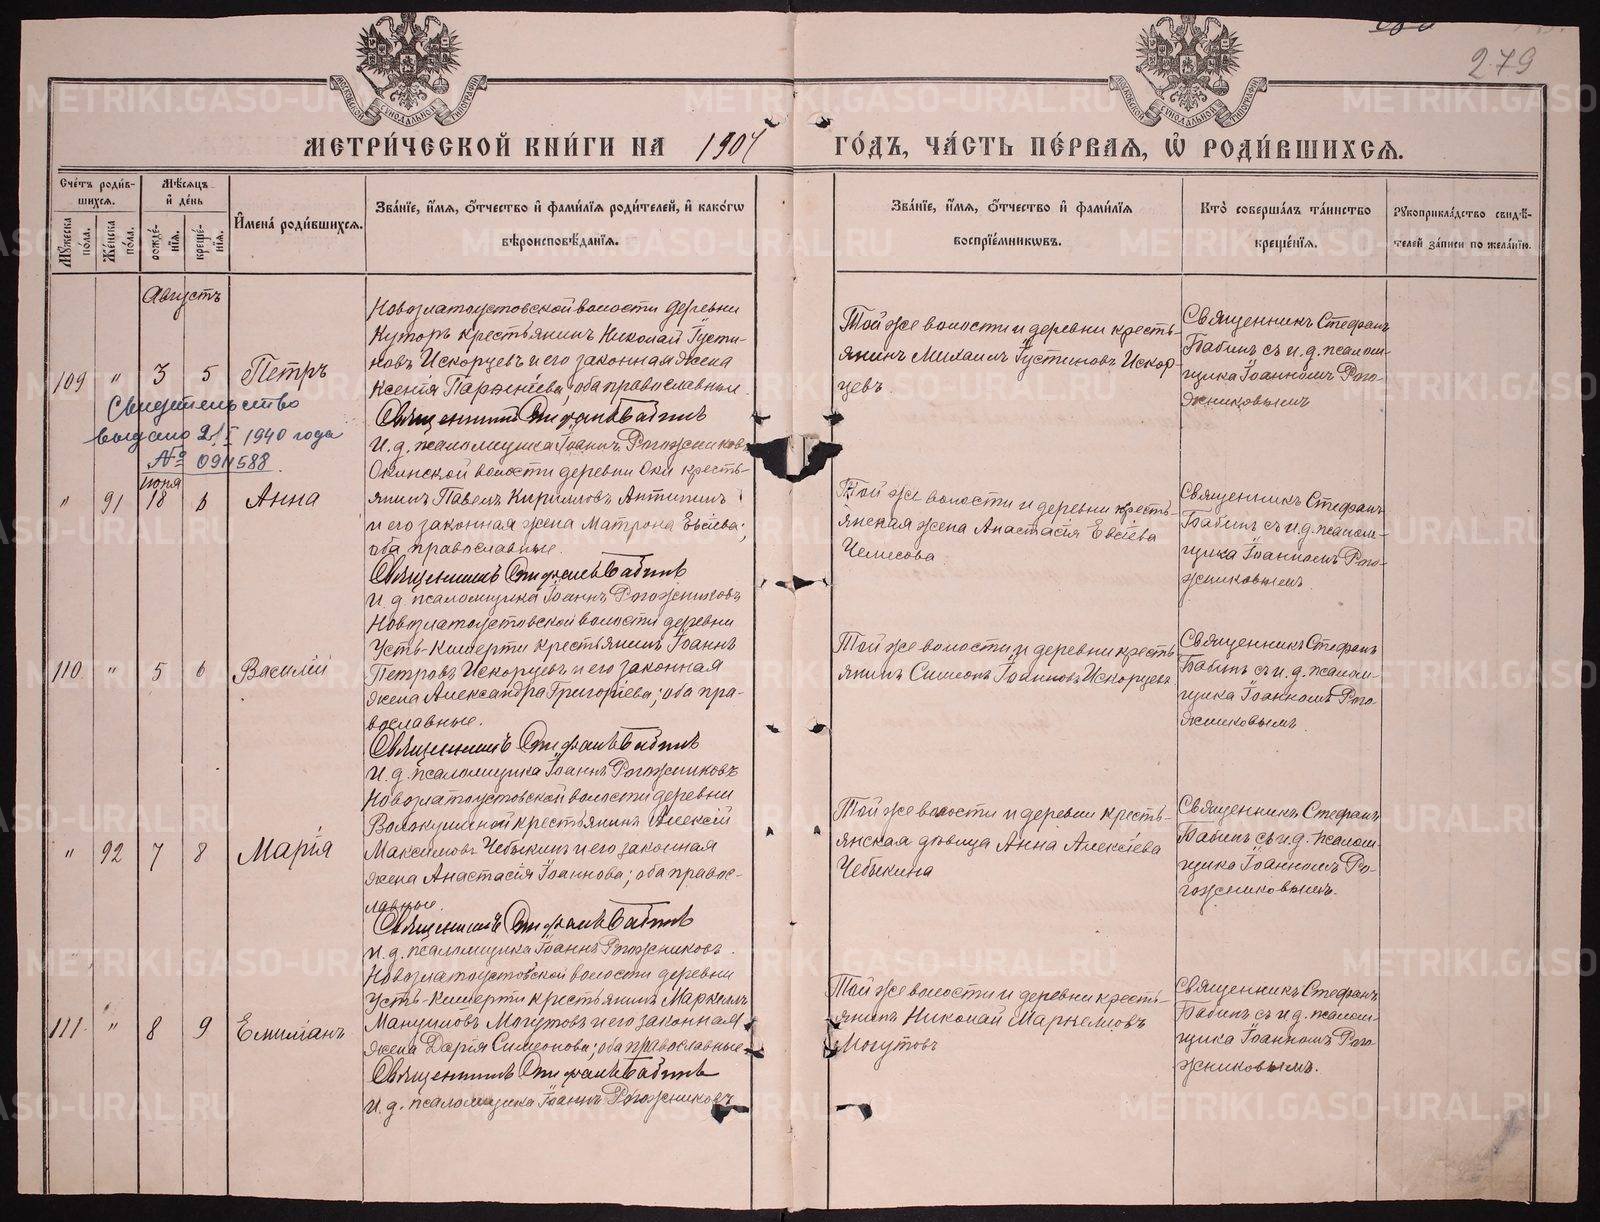 279
МОСКОВСКОЙ СИНОДАЛЬНОЙ ТИПОГРАФІИ
МОСКОВСКОЙ СИНОДАЛЬНОЙ ТИПОГРАФІИ
МЕТРИ́ЧЕСКОЙ КНИ́ГИ НА 1904 ГО́ДЪ, ЧА́СТЬ ПЕ́РВАЯ, Ѡ҆ РОДИ́ВШИХСЯ.
Сче́тъ роди́в-
шихся.
Мꙋ́жеска по́ла.
Же́нска по́ла.
Мѣ́сяцъ
и҆ де́нь
рожде́-
нїя.
креще́-
нїя.
И҆мена̀ роди́вшихся.
Зва́нїе, и҆́мя, ѻ҆́тчество и҆ фами́лїя роди́телей, и҆ како́гѡ
вѣроисповѣ́данїя.
Зва́нїе, и҆́мя, ѻ҆́тчество и҆ фами́лїя
воспрїе́мникѡвъ.
Кто̀ соверша́лъ та́инство
креще́нїя.
Рꙋкоприкла́дство свидѣ́-
телей за́писи по жела́нїю.
Августъ
109 " 3 5 Петръ
Новозлатоустовской волости деревни
Куторъ крестьянинъ Николай Іусти-
новъ Искорцевъ и его законная жена
Ксенія Парѳеніева, оба православные.
Священникъ Стефанъ Бабинъ
И. д. псаломщика Іоаннъ Рогожниковъ
Той же волости и деревни кресть-
янинъ Михаилъ Іустиновъ Искор-
цевъ
Священникъ Стефанъ
Бабинъ съ и. д. псалом-
щика Іоанномъ Рого-
жниковымъ
Свидетельство
выдано 2/I 1940 года
№ 094588.
іюля
" 91 18 6 Анна
Окинской волости деревни Оки кресть-
янинъ Павелъ Кирилловъ Антипинъ
и его законная жена Матрона Евсіева;
оба православные.
Священникъ Стефанъ Бабинъ
И. д. псаломщика Іоаннъ Рогожниковъ
Той же волости и деревни кресть-
янская жена Анастасія Евсіева
Священникъ Стефанъ
Бабинъ съ и. д. псалом-
щика Іоанномъ Рого-
жниковымъ
110 " 5 6 Василій
Новозлатоустовской волости деревни
Усть-Кишерти крестьянинъ Іоаннъ
Петровъ Искорцевъ и его законная
жена Александра Григоріева; оба пра-
вославные.
Священникъ Стефанъ Бабинъ
И. д. псаломщика Іоаннъ Рогожниковъ
Той же волости и деревни кресть-
янинъ Симеонъ Іоанновъ Искорцевъ
Священникъ Стефанъ
Бабинъ съ и. д. псалом-
щика Іоанномъ Рого-
жниковымъ.
" 92 7 8 Марія
Новозлатоустовской волости деревни
Волокушиной крестьянинъ Алексій
Максимовъ Чебыкинъ и его законная
жена Анастасія Іоаннова; оба правос-
лавные.
Священникъ Стефанъ Бабинъ
И. д. псаломщика Іоаннъ Рогожниковъ.
Той же волости и деревни кресть-
янская дѣвица Анна Алексіева
Чебыкина
Священникъ Стефанъ
Бабинъ съ и. д. псалом-
щика Іоанномъ Ро-
гожниковымъ.
111. " 8 9 Емиліанъ
Новозлатоустовской волости деревни
Усть-Кишерти крестьянинъ Маркеллъ
Мануиловъ Могутовъ и его законная
жена Дарія Симеонова; оба православные
Священникъ Стефанъ Бабинъ
И. д. псаломщика Іоаннъ Рогожниковъ
Той же волости и деревни кресть-
янинъ Николай Маркелловъ
Могутовъ
Священникъ Стефанъ
Бабинъ съ и. д. псалом-
щика Іоанномъ Рого-
жниковымъ.
METRIKI.GASO-URAL.RU